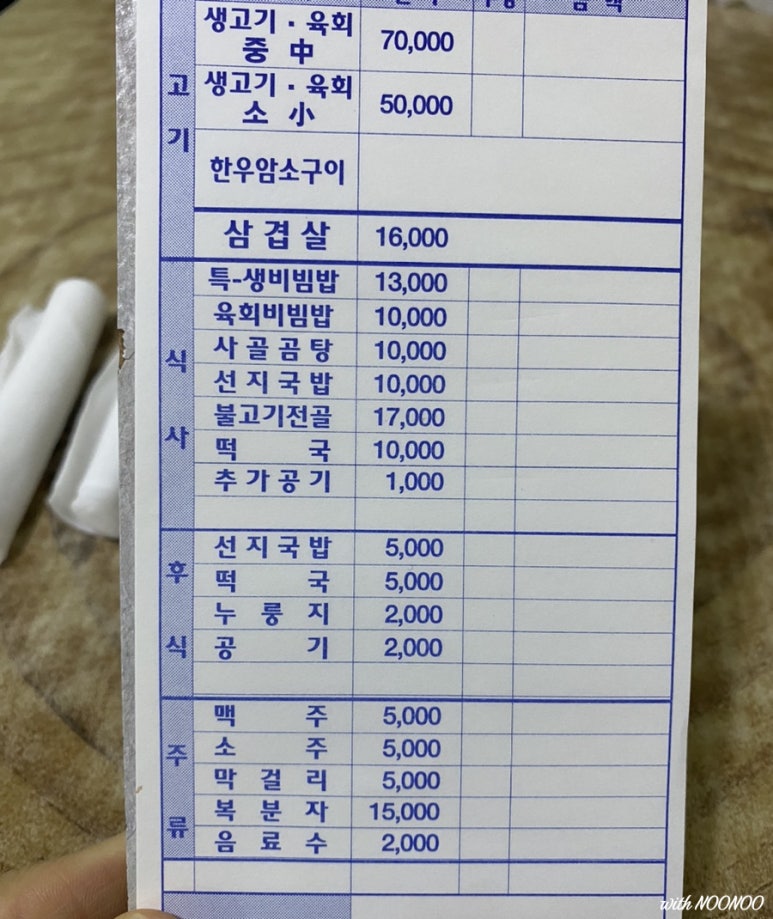 생고기·육회
중 中 70,000
생고기·육회
소 小 50,000
고기
한우암소구이
삼겹살 16,000
식사
특-생비빔밥 13,000
육회비빔밥 10,000
사골곰탕 10,000
선지국밥 10,000
불고기전골 17,000
떡국 10,000
추가공기 1,000
후식
선지국밥 5,000
떡국 5,000
누룽지 2,000
공기 2,000
주류
맥주 5,000
소주 5,000
막걸리 5,000
복분자 15,000
음료수 2,000
with NOONOO